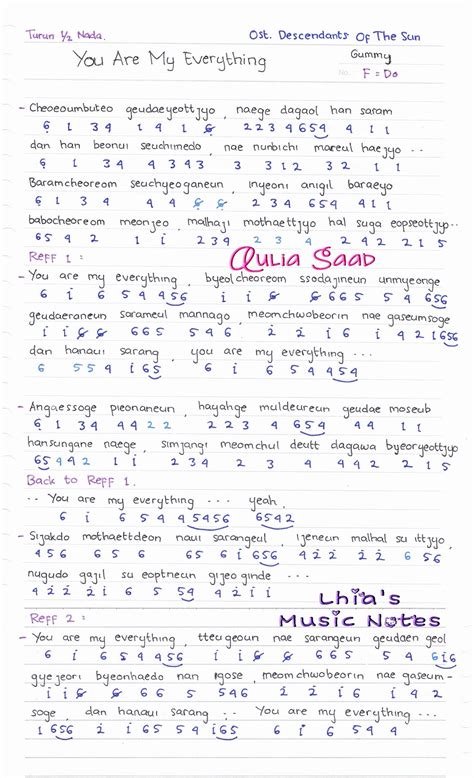 Turun 1/2 Nada. Ost. Descendants Of The Sun
You Are My Everything Gummy
No. F = Do
- Cheoeoumbuteo geudaeyeottjyo, naege dagaol han saram
6 1 3 4 1 4 1 6 2 2 3 4 654 4 1 1
dan han beonui seuchimedo, nae nunbichi mareul haejyo..
6 1 3 4 4 3 4 3 3 3 1 2 3 2 1 1
Baramcheoreom seuchyeoganeun, inyeoni anigil baraeyo
6 1 3 4 4 4 6 6 2 2 3 4 654 4 1 1
babocheoreom meonjeo, malhaji mothaettjyo hal suga eopseottjyo..
6 5 4 2 1 1 2 3 4 2 3 4 2 4 4 2 2 1 5
Reff 1 :
Aulia Saad
- You are my everything, byeolcheoreom ssodajineun unmyeonge
6 i 6 5 4 456 i i 6 6 6 6 5 5 4 656
geudaeraneun sarameul mannago, meomchwobeorin nae gaseumsoge
i i 6 6 6 6 5 5 4 6 2 2 i 6 i 4 2 1656
dan hanaui sarang, you are my everything...
6 5 5 4 i 65 6 i 6 5 4 454
- Angaessoge pieonaneun, hayahge muldeureun geudae moseub
6 1 3 4 4 4 2 2 2 2 3 4 654 4 4 1 1
hansungane naege, simjangi meomchul deutt dagawa byeoryeottjyo
65 4 4 2 1 1 2 3 4 2 3 4 2 4 4 2 2 1 5
Back to Reff 1.
.. You are my everything ... yeah.
6 i 6 5 4 5456 6542
- Sijakdo mothaettdeon naui sarangeul, ijeneun malhal su ittjyo,
4 5 6 6 5 6 6 5 6 i 656 4 2 2 i 2 2 6 2
nugudo gajil su eoptneun gijeo ginde ...
Lhia's
Music Notes
Reff 2 :
- You are my everything, tteugeoun nae sarangeun geudaen geol
6 i 6 5 4 456 i i 6 6 6 6 5 5 4 6i6
gyejeori byeonhaedo nan igose, meomchwobeorin nae gaseum-
i i 6 6 6 6 5 5 546 2 2 i 6 i i 4 2
soge, dan hanaui sarang... You are my everything...
1 656 2 i 5 4 i 65 6 i 6 5 4 454